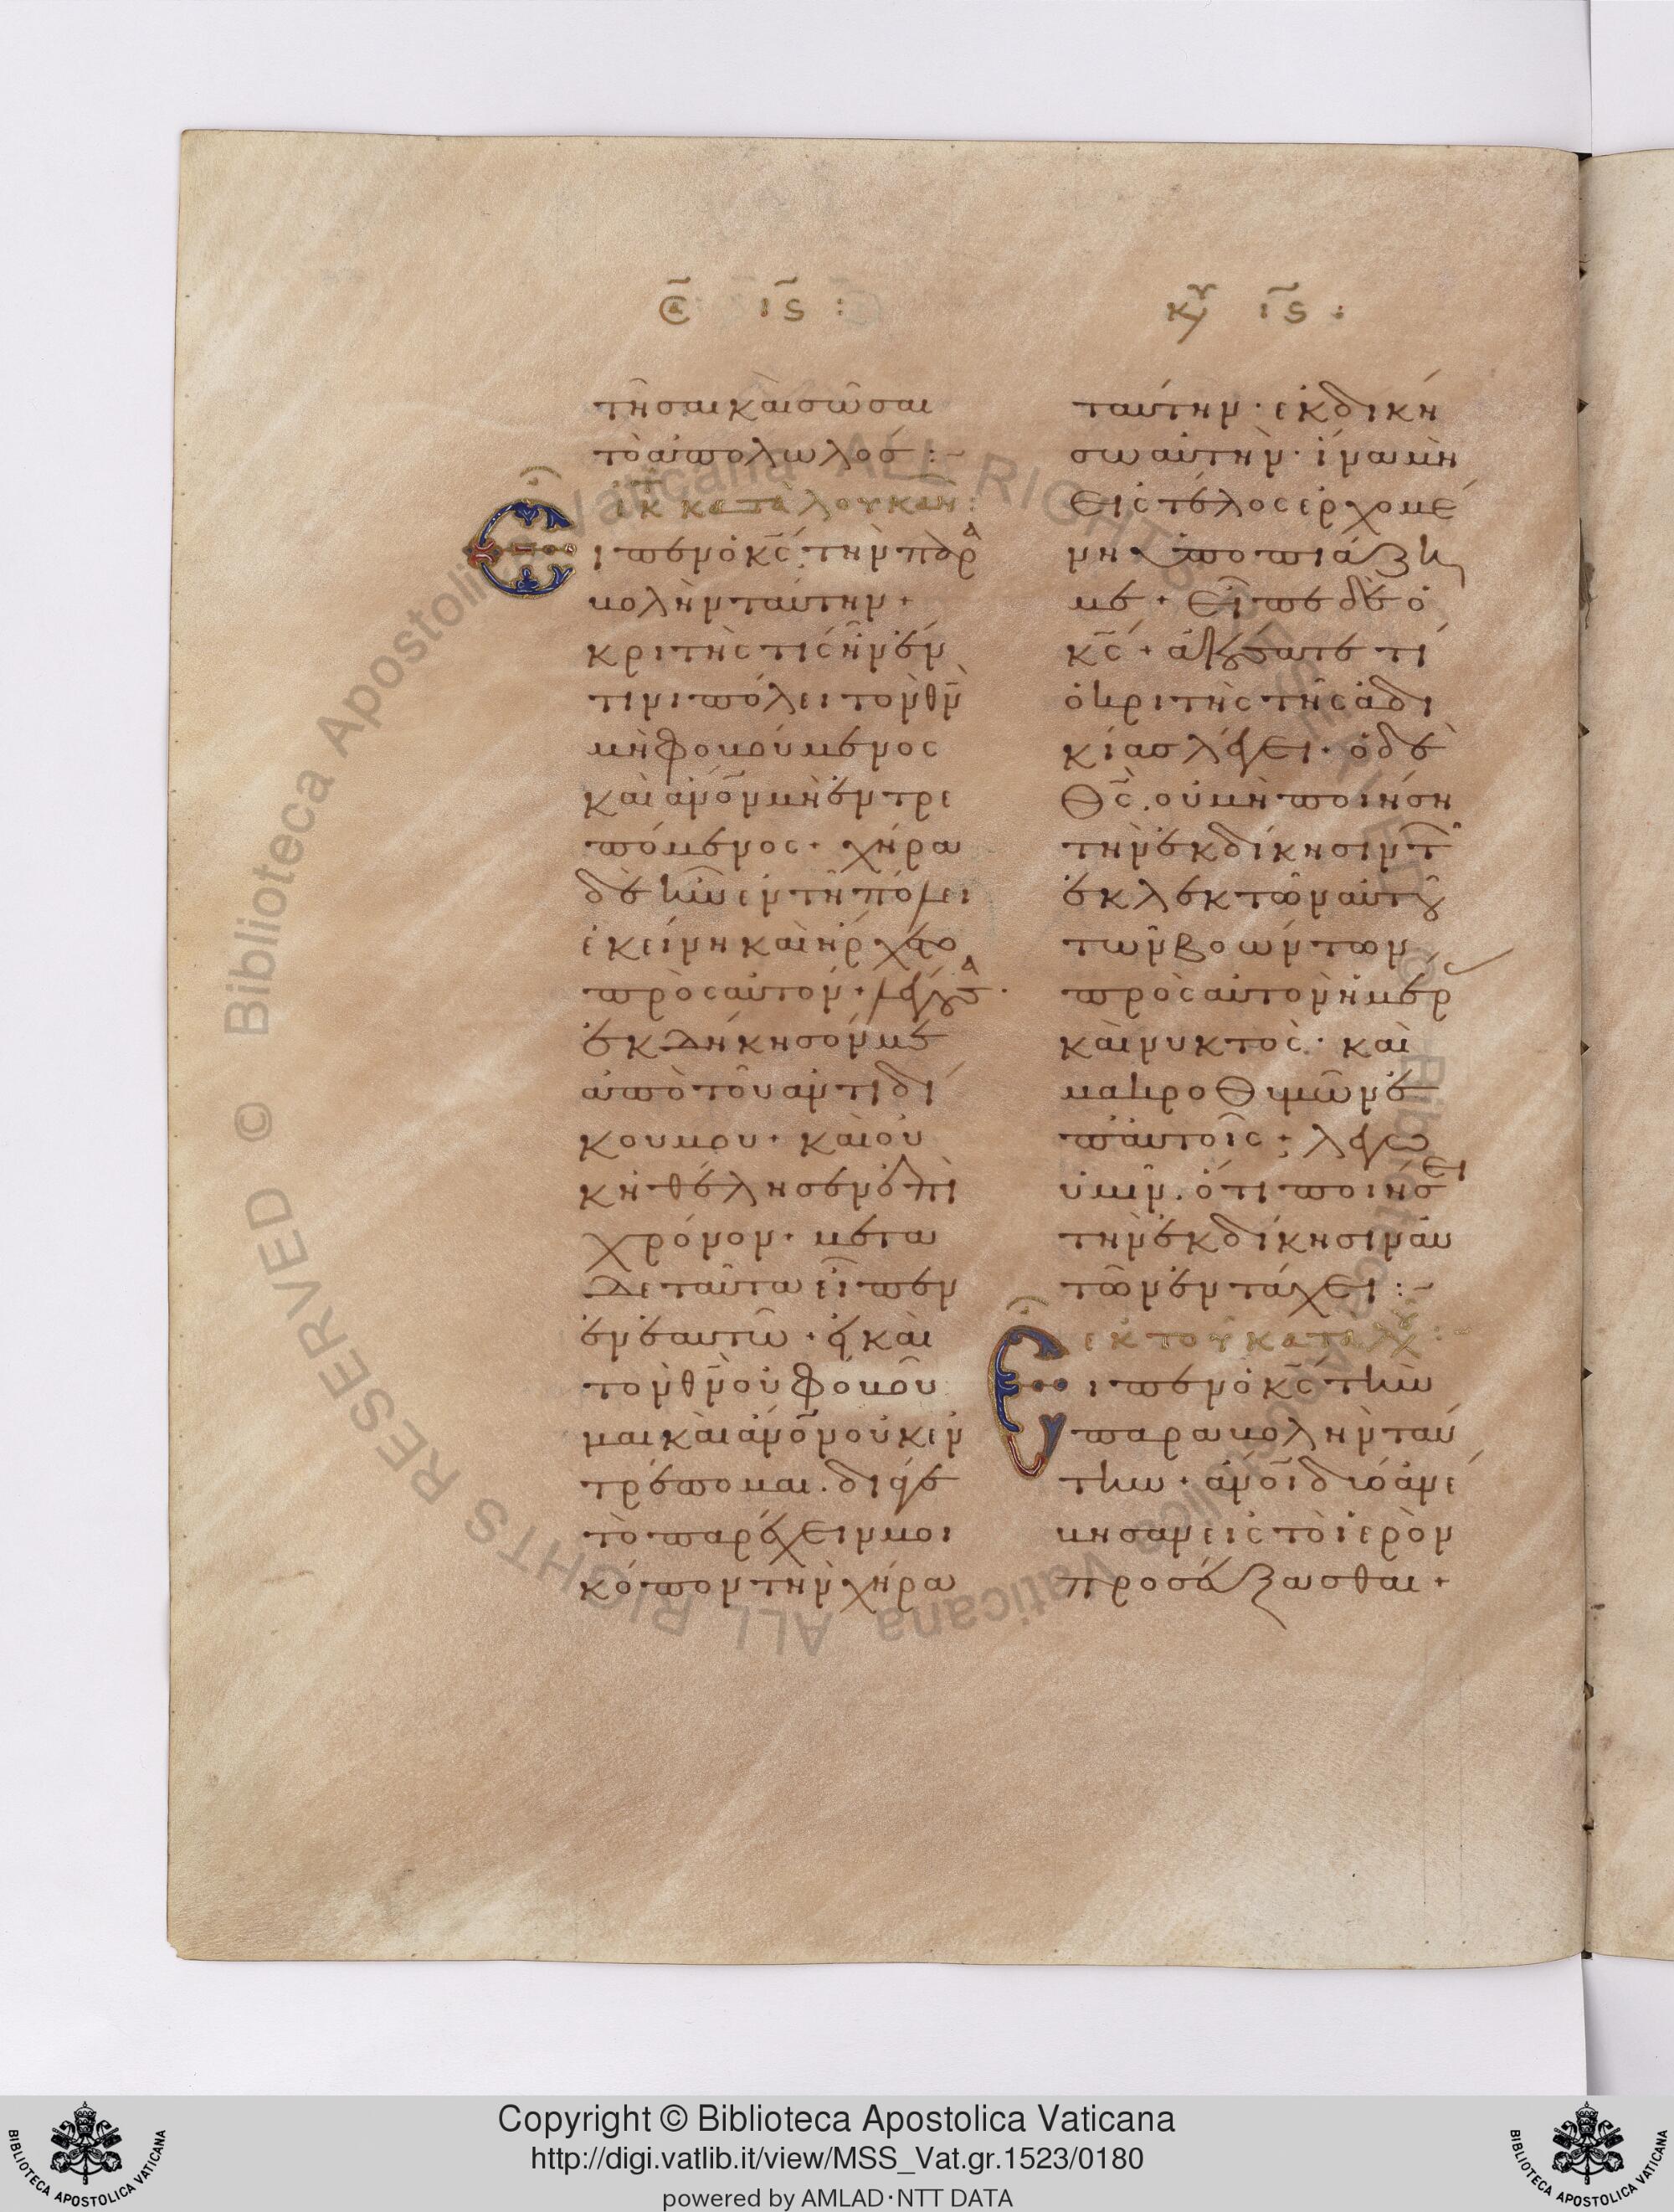 Σα ιϛ :
τῆσαι καὶ σῶσαι
τὸ ἀπολωλόσ :~
ἐκ τ κατὰ λουκαν :
Ειπεν ὁ κς τὴν παρα
βολὴν ταύτην +
κριτὴς τίς ἦν ἔν
τινι πόλει τὸν θν
μὴ φοβούμενος
καὶ ανον μὴ ἐντρε
πόμενος + χήρα
δὲ ἦν ἐν τῆ πόλει
ἐκείνη καὶ ἤρχετο
πρὸς αὐτον + λέγουσα ·
ἐκδίκησόν με
ἀπὸ τοῦ ἀντιδί
κου μου + καὶ οὐ
κ ἠθέλησεν ἐπὶ
χρόνον + μετα
δε ταῦτα εἶπεν
ἐν ἑαυτῶ + εἰ καὶ
τὸν θν οὐ φοβοῦ
μαι καὶ ανον οὐκ ἐν
τρέπομαι . διά γε
τὸ παρέχειν μοι
κόπον τὴν χήρα
κυ ιϛ :
ταύτην · ἐκδική
σω αὐτήν · ἵνα μὴ
εἰς τέλος ἐρχομέ
νη ὑποπιάζη
με + εἶπε δὲ ὁ
κς + ἀκούσατε τί
ὁ κριτὴς τῆς ἀδι
κίασ λέγει · ὁ δὲ
Θς . οὐ μὴ ποιήση
τὴν ἐκδίκησιν τῶν
ἐκλεκτῶν αὐτοῦ
τῶν βοώντων
πρὸς αὐτὸν ἡμέρασ
καὶ νυκτός · καὶ
μακροθυμῶν ἐ
π αὐτοῖς + λέγω
ὑμῖν . ὅτι ποιήσει
τὴν ἐκδίκησιν αὐ
τῶν ἐν τάχει :~
ἐκ τοῦ κατα λου :~
Ειπεν ὁ κς τὴν
παραβολὴν ταύ
την + ανοι δύο ἀνέ
βησαν εἰς τὸ ἱερὸν
προσεύξασθαι +
Copyright © Biblioteca Apostolica Vaticana
http://digi.vatlib.it/view/MSS_Vat.gr.1523/0180
powered by AMLAD·NTT DATA
BIBLIOTECA APOSTOLICA VATICANA
BIBLIOTECA APOSTOLICA VATICANA
© Biblioteca Apostolica Vaticana ALL RIGHTS RESERVED © Biblioteca Apostolica Vaticana ALL RIGHTS RESERVED